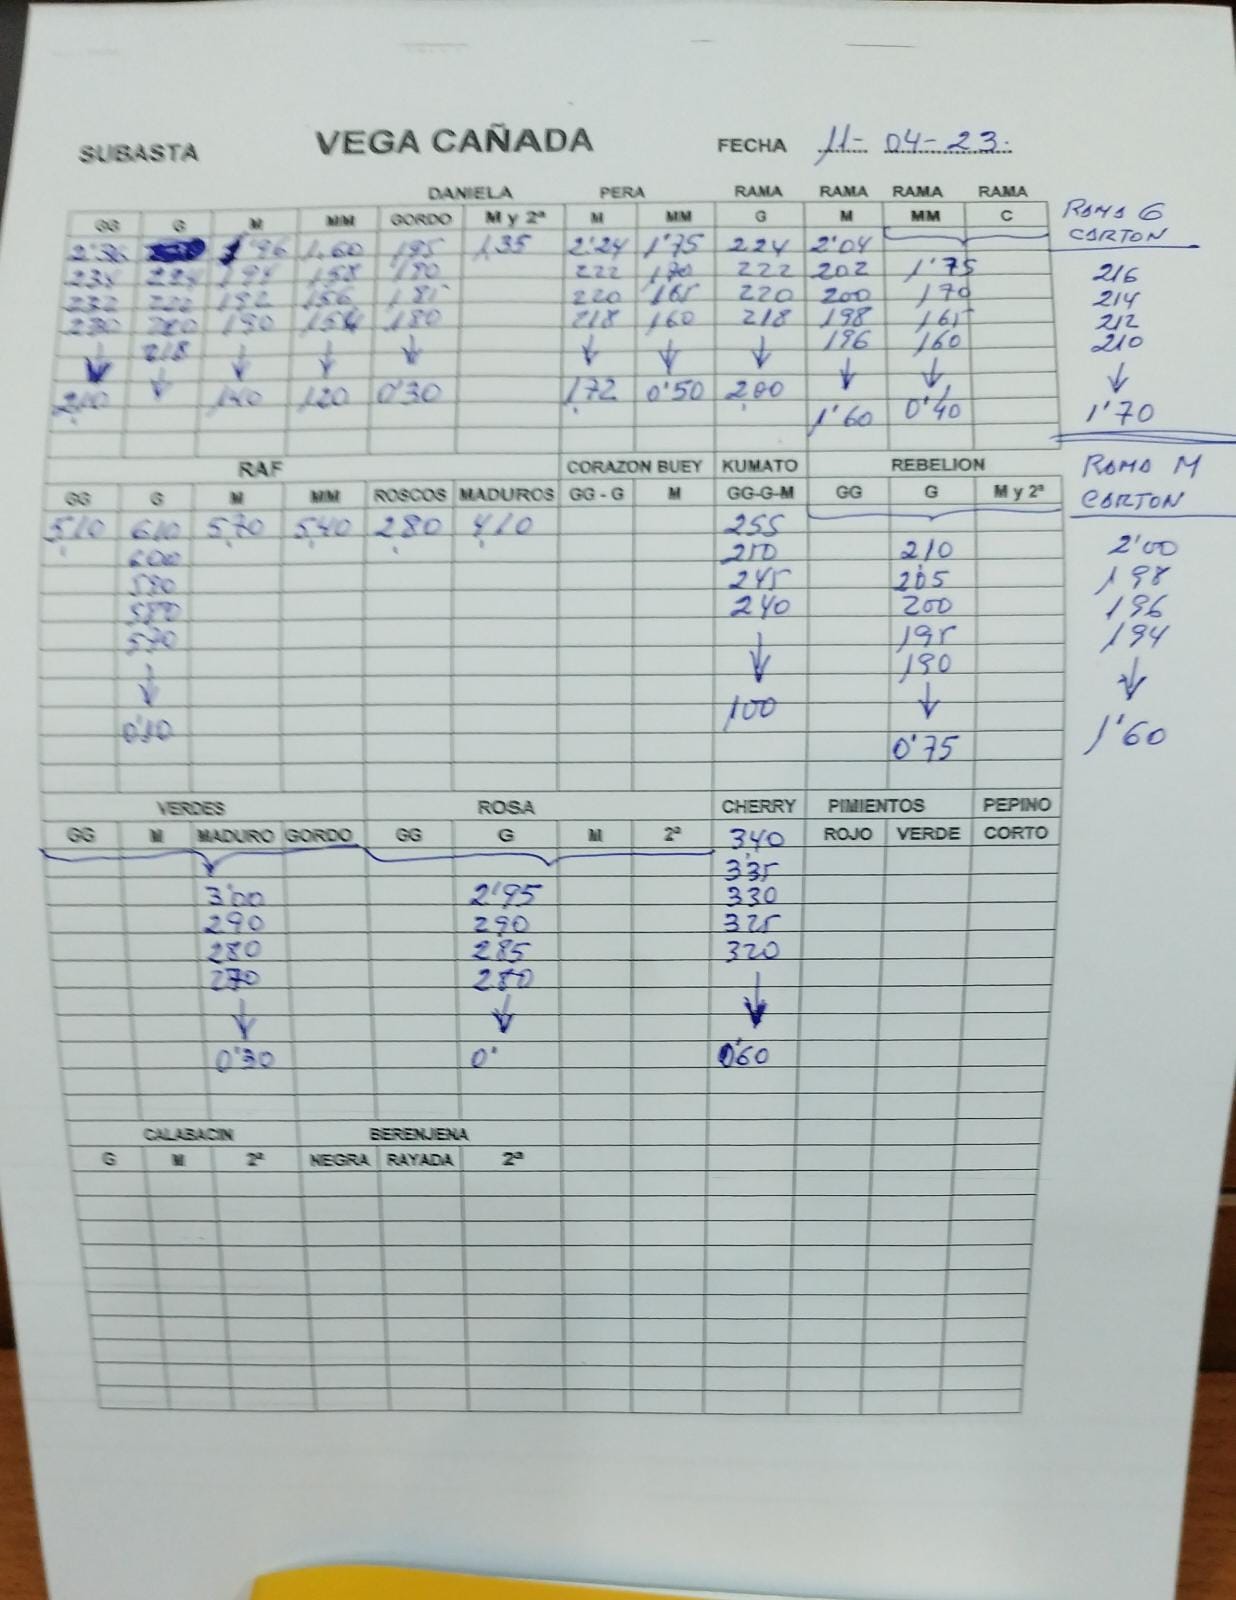 SUBASTA VEGA CAÑADA FECHA 11-04-23
DANIELA PERA RAMA RAMA RAMA RAMA
GG G M MM GORDO M y 2ª M MM G M MM C RAMA G
CARTON
2'36 1'96 1,60 195 1,35 2'24 1'75 224 2'04
234 224 194 158 190 222 170 222 202 1'75 216
232 220 192 156 185 220 165 220 200 170 214
230 200 190 154 180 218 160 218 198 165 212
218 196 160 210
210 140 120 0'30 172 0'50 200 1'60 0'40 1'70
RAF CORAZON BUEY KUMATO REBELION RAMA M
GG G M MM ROSCOS MADUROS GG - G M GG-G-M GG G M y 2ª CARTON
510 610 570 540 280 410 255
600 250 210 2'00
590 245 205 198
580 240 200 196
570 195 194
190
100
0'10 0'75 1'60
VERDES ROSA CHERRY PIMIENTOS PEPINO
GG M MADURO GORDO GG G M 2ª 340 ROJO VERDE CORTO
335
3'00 2'95 330
290 290 325
280 285 320
270 280
0'30 0' 0'60
CALABACIN BERENJENA
G M 2ª NEGRA RAYADA 2ª